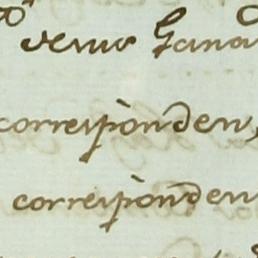 Gana
corresponden,
corresponden